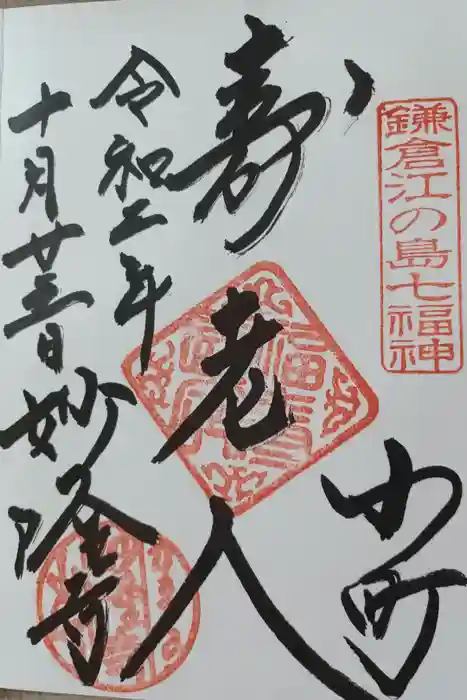 鎌倉江の島七福神
小町
寿老人
令和二年
十月廿三日
妙隆寺